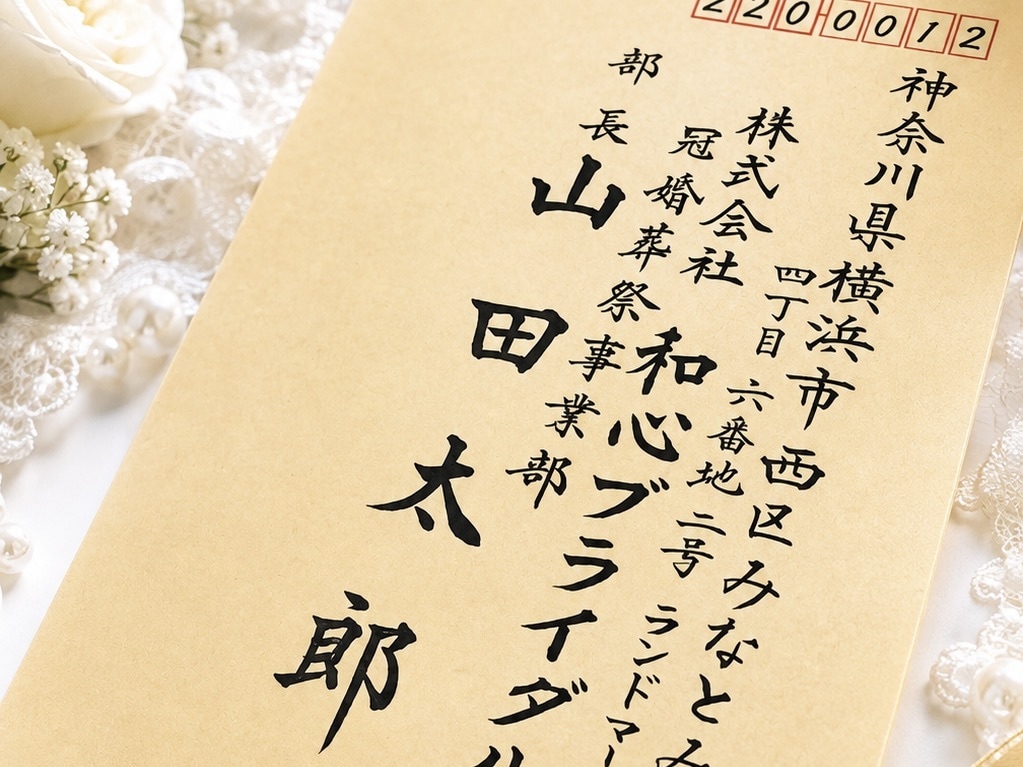 2200012
神奈川県横浜市西区みなとみ
四丁目六番地二号ランドマー
株式会社和心ブライダル
冠婚葬祭事業部
部長山田太郎